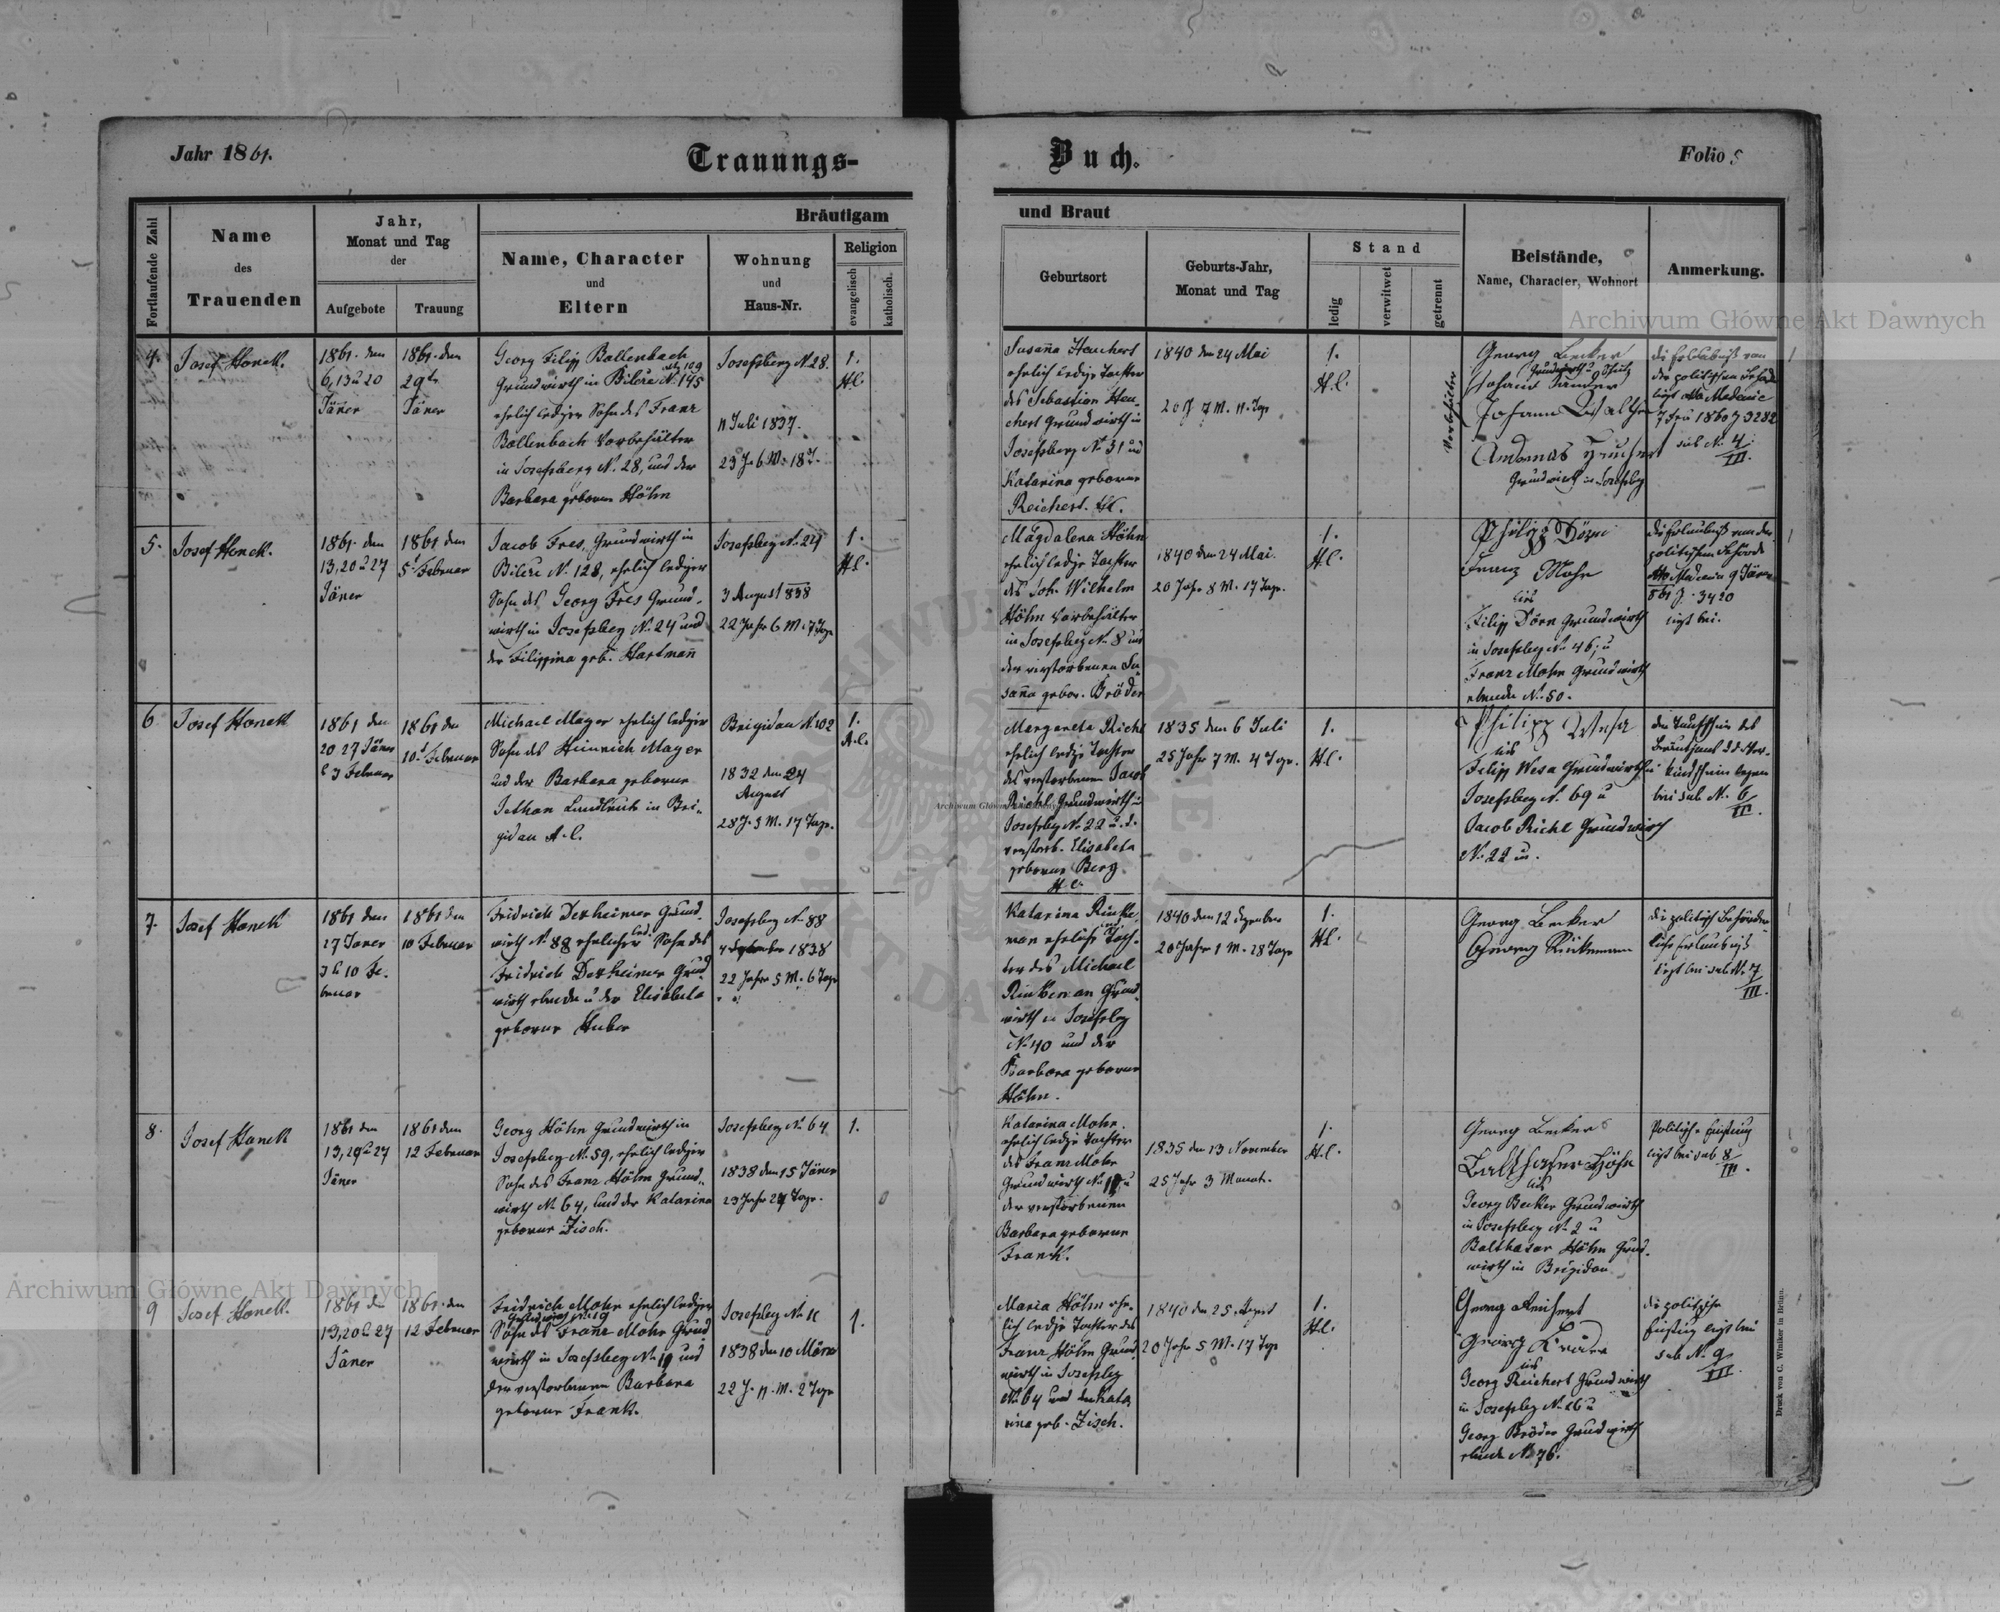 Jahr 1861.
Trauungs-
Buch.
Folio
Fortlaufende Zahl
Name
des
Trauenden
Jahr,
Monat und Tag
der
Aufgebote
Trauung
Bräutigam
Name, Character
und
Eltern
Wohnung
und
Haus-Nr.
Religion
evangelisch
katholisch.
und Braut
Geburtsort
Geburts-Jahr,
Monat und Tag
Stand
ledig
verwitwet
getrennt
Beistände,
Name, Character, Wohnort
Anmerkung.
Archiwum Główne Akt Dawnych
4.
Josef Honek.
1861. den
6, 13 u 20
Jäner
1861. den
29t
Jäner
Georg Filipp Bollenbach
Grundwirth in Bilcze N. 145
ehelich lediger Sohn des Franz
Bollenbach Vorbehälter
in Josefsberg N. 28, und der
Barbara geborne Höhn
Josefsberg N. 28.
11 Juli 1837.
23 J. 6 M. 18 T.
1.
H.C.
Susaña Heuchert
ehelich ledige Tochter
des Sebastian Heu-
chert Grundwirth in
Josefsberg N. 31 und
Katarina geborne
Reichert. H.C.
1840 den 24 Mai
20 J 7 M. 11. Tage
1.
H.C.
Georg Becker
Vorbehälter
Grundwirth in Josefsberg
die Erlaubniß von
der politischen Behörde
1860 Z 3282
sub N. 4
III.
5.
Josef Honek.
1861. den
13, 20 u 27
Jäner
1861 den
5t Februar
Jacob Fres, Grundwirth in
Bilcze N. 128, ehelich lediger
Sohn des Georg Fres Grund-
wirth in Josefsberg N. 24 und
der Filippina geb. Hartmañ
Josefsberg N. 24
3 August 1838
22 Jahr 6 M. 7 Tage
1.
H.C.
Magdalena Höhn
ehelich ledige Tochter
des Joh. Wilhelm
Höhn Vorbehälter
in Josefsberg N. 8 und
der verstorbenen Su-
saña gebor. Bröder
1840 den 24 Mai.
20 Jahr 8 M. 17 Tage.
1.
H.C.
Philipp Dörn
Franz Mohr
Filipp Dörn Grundwirth
in Josefsberg N. 46; u
Franz Mohr Grundwirth
ebenda N. 50.
die Erlaubniß von der
politischen Behörde
9 Jäner
861 Z. 3420
liegt bei.
6
Josef Honek
1861 den
20 27 Jäner
u 3 Februar
1861 den
10t Februar
Michael Mayer ehelich lediger
Sohn des Heinrich Mayer
und der Barbara geborne
Landleute in Bri-
gidau A.C.
Brigidau N. 102
1832 den 24
August
28 J. 5 M. 17 Tage.
1.
A.C.
Margareta Richl
ehelich ledige Tochter
des verstorbenen Jacob
Richl Grundwirth in
Josefsberg N. 22 u. d.
verstorb. Elisabeta
geborne Berg.
H.C.
1835 den 6 Juli
25 Jahr 7 M. 4 Tage.
1.
H.C.
Philipp Wesa
Filipp Wesa Grundwirth in
Josefsberg N. 69 u
Jacob Richl Grundwirth
N. 22 in.
der Taufschein des
Bräutigams
liegen
bei sub N. 6
III.
7.
Josef Honek
1861 den
27 Janer
3 u 10 Fe-
bruar
1861 den
10 Februar
Fridrich Dexheimer Grund-
wirth N. 88 ehelicher led. Sohn des
Fridrich Dexheimer Grund-
wirth ebenda u der Elisabeta
geborne Huber
Josefsberg N. 88
4 September 1838
22 Jahre 5 M. 6 Tage
Katarina Rinke-
man eheliche Toch-
ter des Michael
Rinkeman Grund-
wirth in Josefsberg
N. 40 und der
Barbara geborne
Höhn.
1840 den 12 Dezember
20 Jahr 1 M. 28 Tage
1.
H.C.
Georg Becker
Georg Rinkemann
die politisch behörd-
liche Erlaubniß
liegt bei sub N. 7
III.
8.
Josef Honek
1861 den
13, 20 u 27
Jäner
1861 den
12 Februar
Georg Höhn Grundwirth in
Josefsberg N. 59, ehelich lediger
Sohn des Franz Höhn Grund-
wirth N. 64, und der Katarina
geborne Zisch.
Josefsberg N. 64
1838 den 15 Jäner
23 Jahr 27 Tage.
1.
Katarina Mohr.
ehelich ledige Tochter
des Franz Mohr
Grundwirth N. 11 u
der verstorbenen
Barbara geborne
Frank.
1835 den 13 November
25 Jahr 3 Monat.
1.
H.C.
Georg Becker
Balthasar Höhn
Georg Becker Grundwirth
in Josefsberg N. 2 u
Balthasar Höhn Grund-
wirth in Brigidau
liegt bei sub 8
III.
9
Josef Honek.
1861 den
13, 20 u 27
Jäner
1861. den
12 Februar
Fridrich Mohr ehelich lediger
Sohn des Franz Mohr Grund-
wirth in Josefsberg N. 11 und
der verstorbenen Barbara
geborne Frank.
Josefsberg N. 11
1838 den 10 März
22 J. 11. M. 2 Tage
1.
Maria Höhn ehe-
lich ledige Tochter des
Franz Höhn Grund-
wirth in Josefsberg
N. 64 und der Kata-
rina geb. Zisch.
1840 den 25
20 Jahr 5 M. 17 Tage
1.
H.C.
Georg Reichert
Georg Bröder
Georg Reichert Grundwirth
in Josefsberg N. 26 u
Georg Bröder Grundwirth
ebenda N. 76.
die politische
liegt bei
sub N. 9
III.
Druck von C. Winiker in Brünn.
Archiwum Główne Akt Dawnych